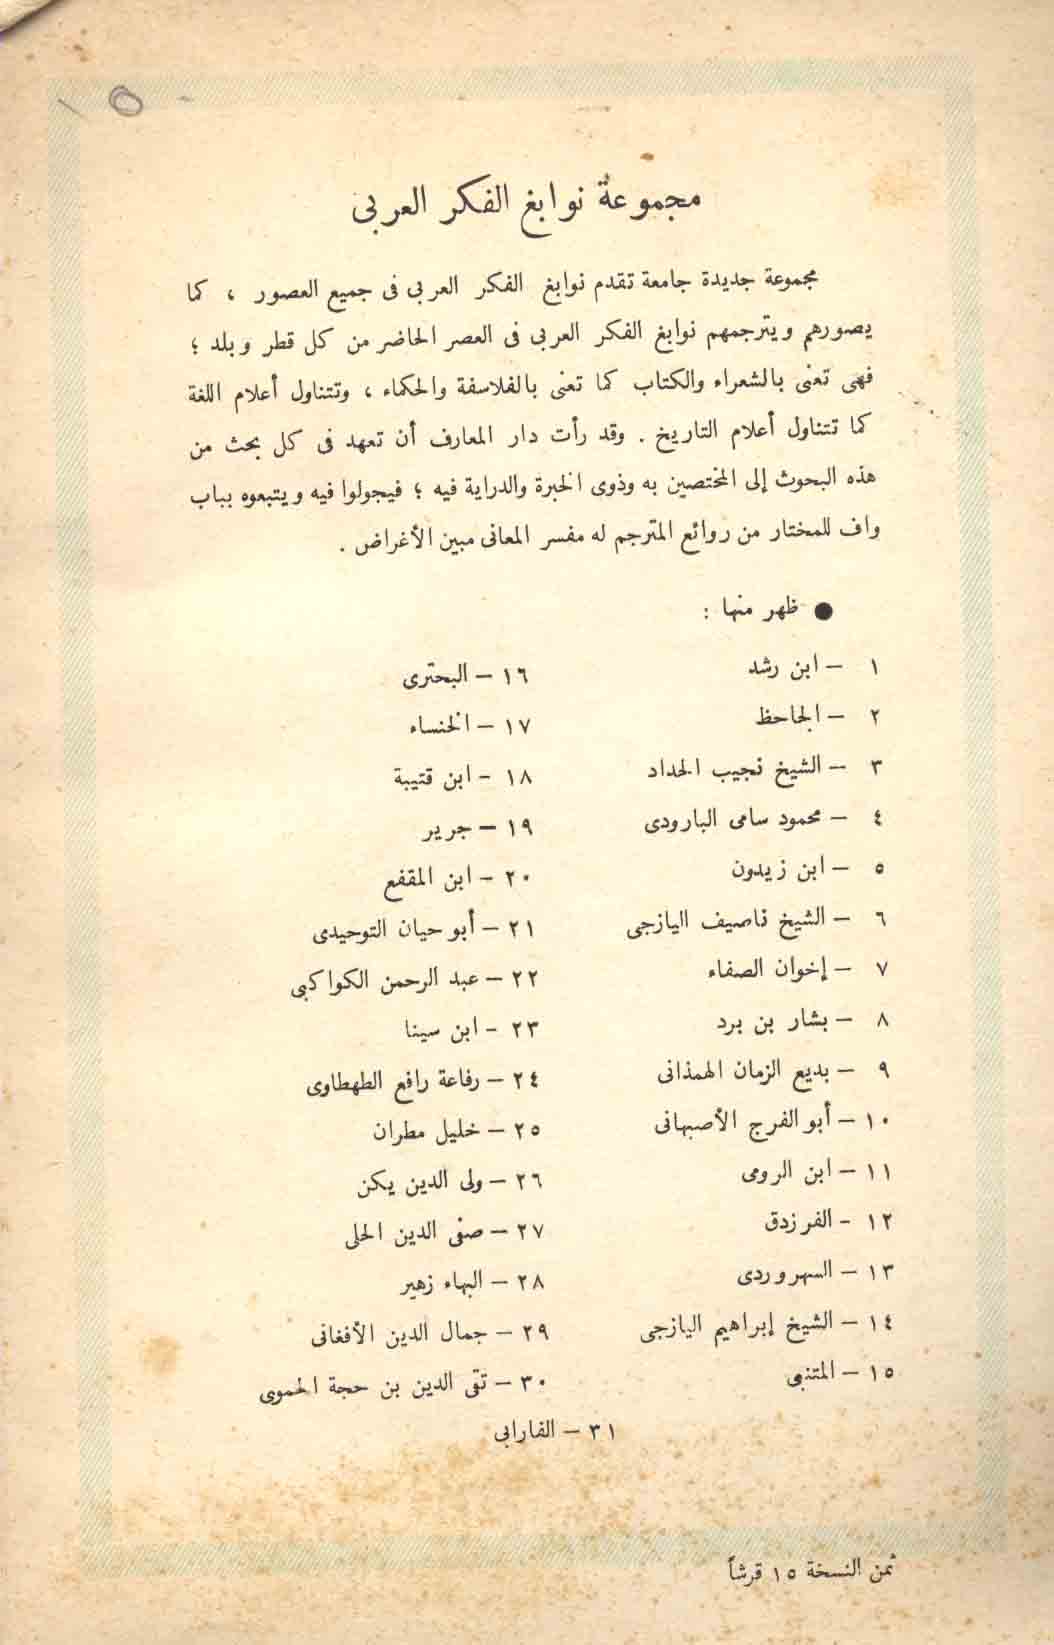 مجموعة نوابغ الفكر العربى
مجموعة جديدة جامعة تقدم نوابغ الفكر العربى فى جميع العصور ، كما
يصورهم ويترجمهم نوابغ الفكر العربى فى العصر الحاضر من كل قطر وبلد ؛
فهى تعنى بالشعراء والكتاب كما تعنى بالفلاسفة والحكماء ، وتتناول أعلام اللغة
كما تتناول أعلام التاريخ . وقد رأت دار المعارف أن تعهد فى كل بحث من
هذه البحوث إلى المختصين به وذوى الخبرة والدراية فيه ؛ فيجولوا فيه ويتبعوه بباب
واف للمختار من روائع المترجم له مفسر المعانى مبين الأغراض .
● ظهر منها :
١ – ابن رشد
٢ – الجاحظ
٣ – الشيخ نجيب الحداد
٤ – محمود سامى البارودى
٥ – ابن زيدون
٦ – الشيخ ناصيف اليازجى
٧ – إخوان الصفاء
٨ – بشار بن برد
٩ – بديع الزمان الهمذانى
١٠ – أبو الفرج الأصبهانى
١١ – ابن الرومى
١٢ - الفرزدق
١٣ – السهروردى
١٤ – الشيخ إبراهيم اليازجى
١٥ – المتنبى
١٦ – البحترى
١٧ – الخنساء
١٨ - ابن قتيبة
١٩ – جرير
٢٠ – ابن المقفع
٢١ – أبو حيان التوحيدى
٢٢ – عبد الرحمن الكواكبى
٢٣ - ابن سينا
٢٤ – رفاعة رافع الطهطاوى
٢٥ – خليل مطران
٢٦ – ولى الدين يكن
٢٧ – صفى الدين الحلى
٢٨ – البهاء زهير
٢٩ – جمال الدين الأفغانى
٣٠ – تقى الدين بن حجة الحموى
٣١ – الفارابى
ثمن النسخة ١٥ قرشاً